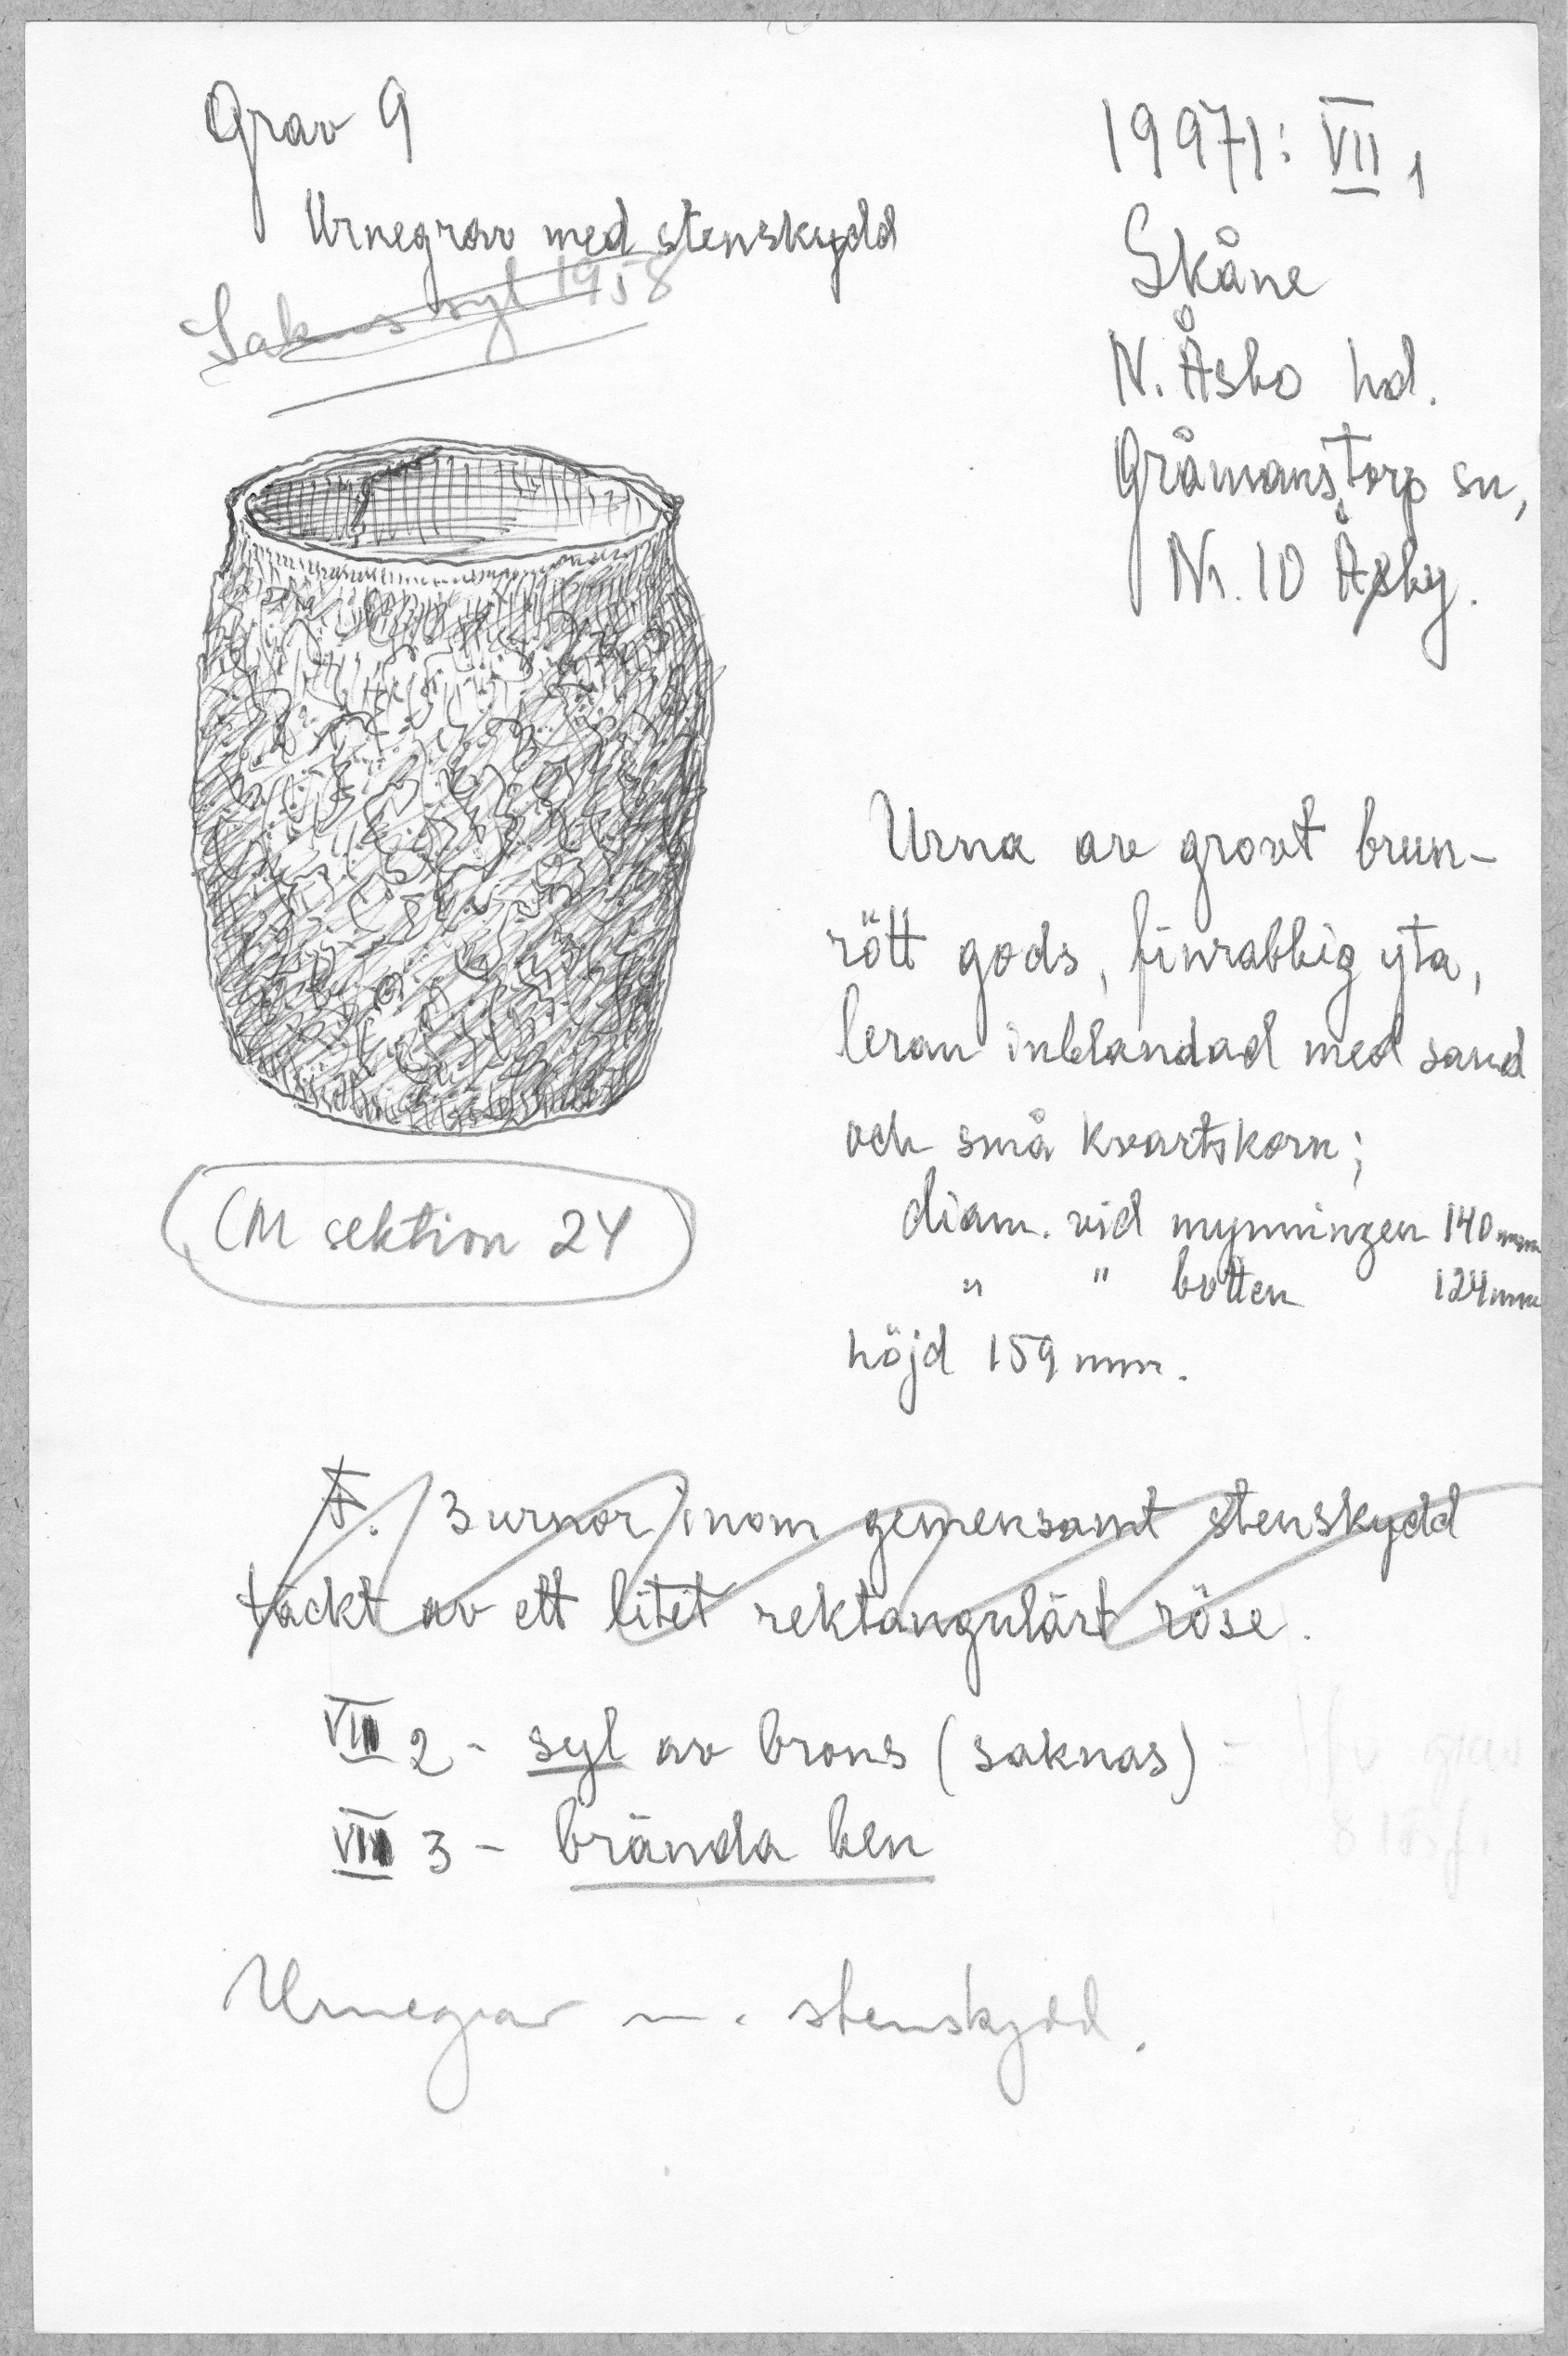 Grav 9
Urnegrav med stenskydd
Saknas syl 1958
19971: VII 1
Skåne
N. Åsbo hd.
Gråmanstorp sn,
Nr. 10 Åsby.
Urna av grovt brun-
rött gods, finrabbig yta,
leran inblandad med sand
och små kvartskorn;
diam. vid mynningen 140 mm
" " botten 124 mm
höjd 159 mm.
CM sektion 24
F. 3 urnor inom gemensamt stenskydd
täckt av ett litet rektangulärt röse.
VII 2 - syl av brons (saknas)
VII 3 - brända ben
Urnegrav m. stenskydd.